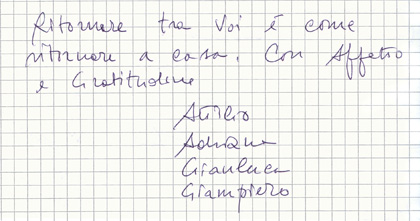 Ritornare tra Voi è come
ritornare a casa. Con Affetto
e Gratitudine
Attilio
Adriana
Gianluca
Giampiero